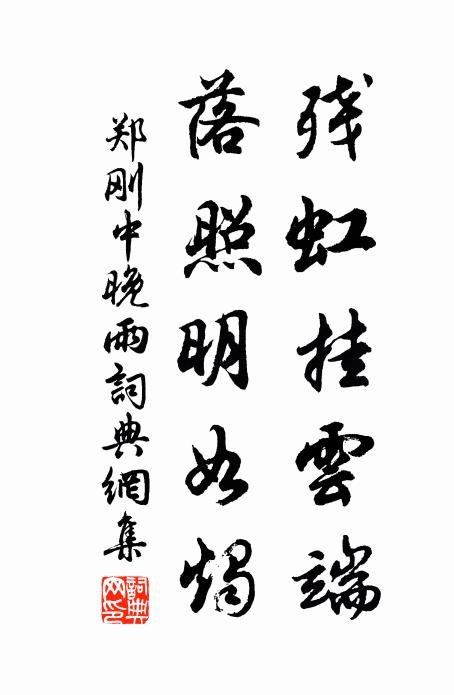 残虹挂雲端
落照明如燭
郑刚中晚雨詞典網集